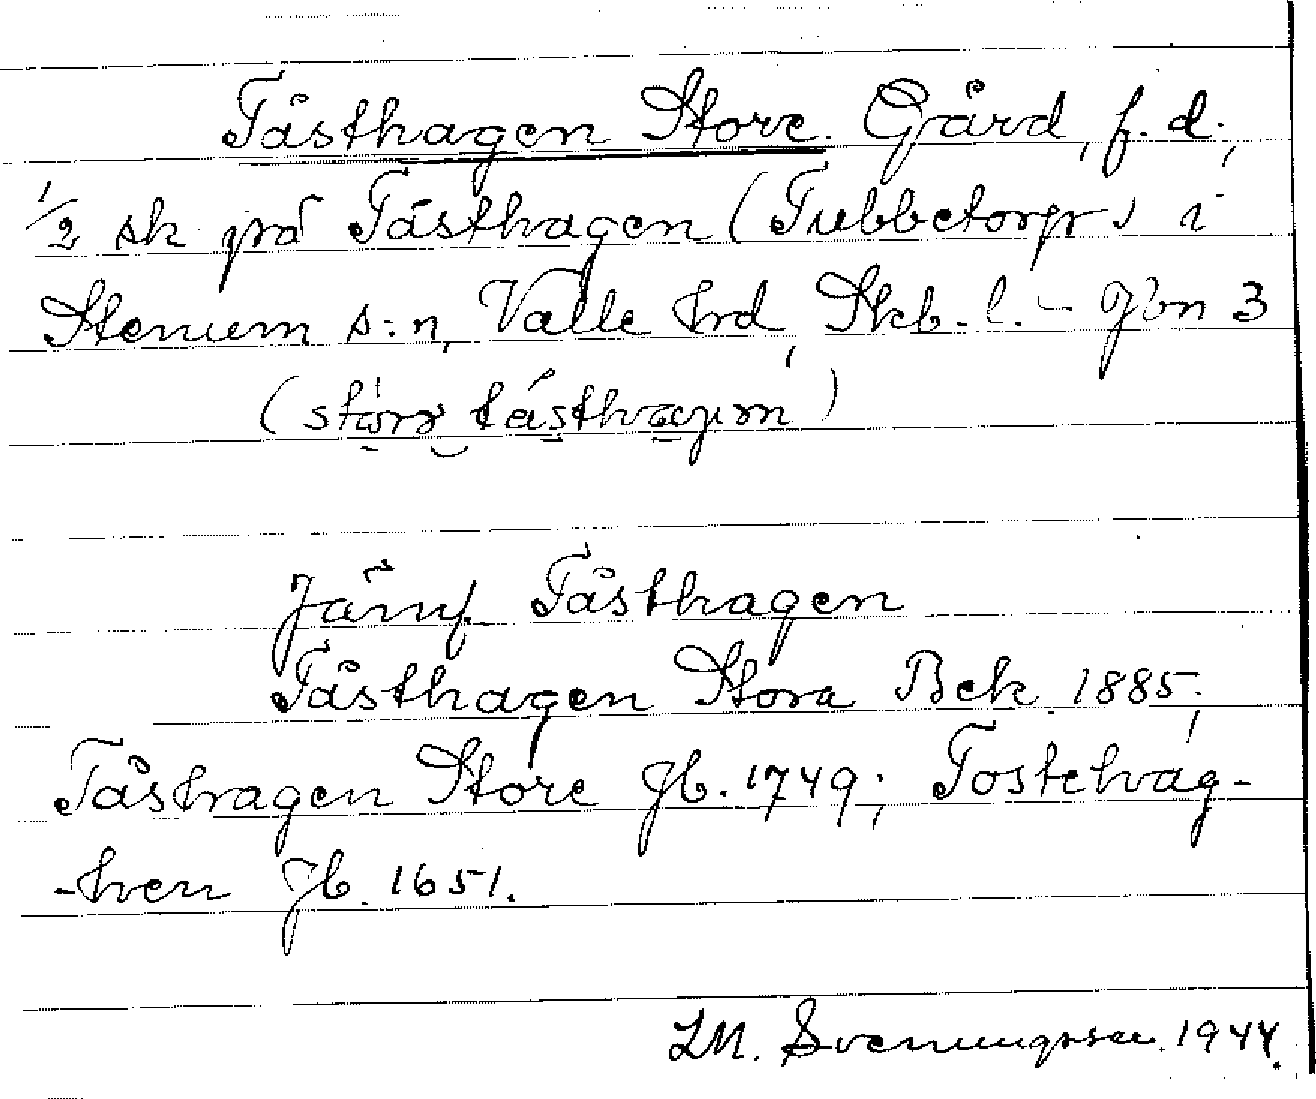 Tåsthagen Store. Gård, f. d.,
1/2 sk på Tåsthagen (Tubbetorp) i
Stenum s:n, Valle hrd, Skb. l. - Gbn 3
(störe tåsthagen)
Jämf. Tåsthagen
Tåsthagen Stora Bek. 1885;
Tåsthagen Store Jb. 1749; Tostehag-
-hven Jb. 1651.
LM. Svenungsson 1944.